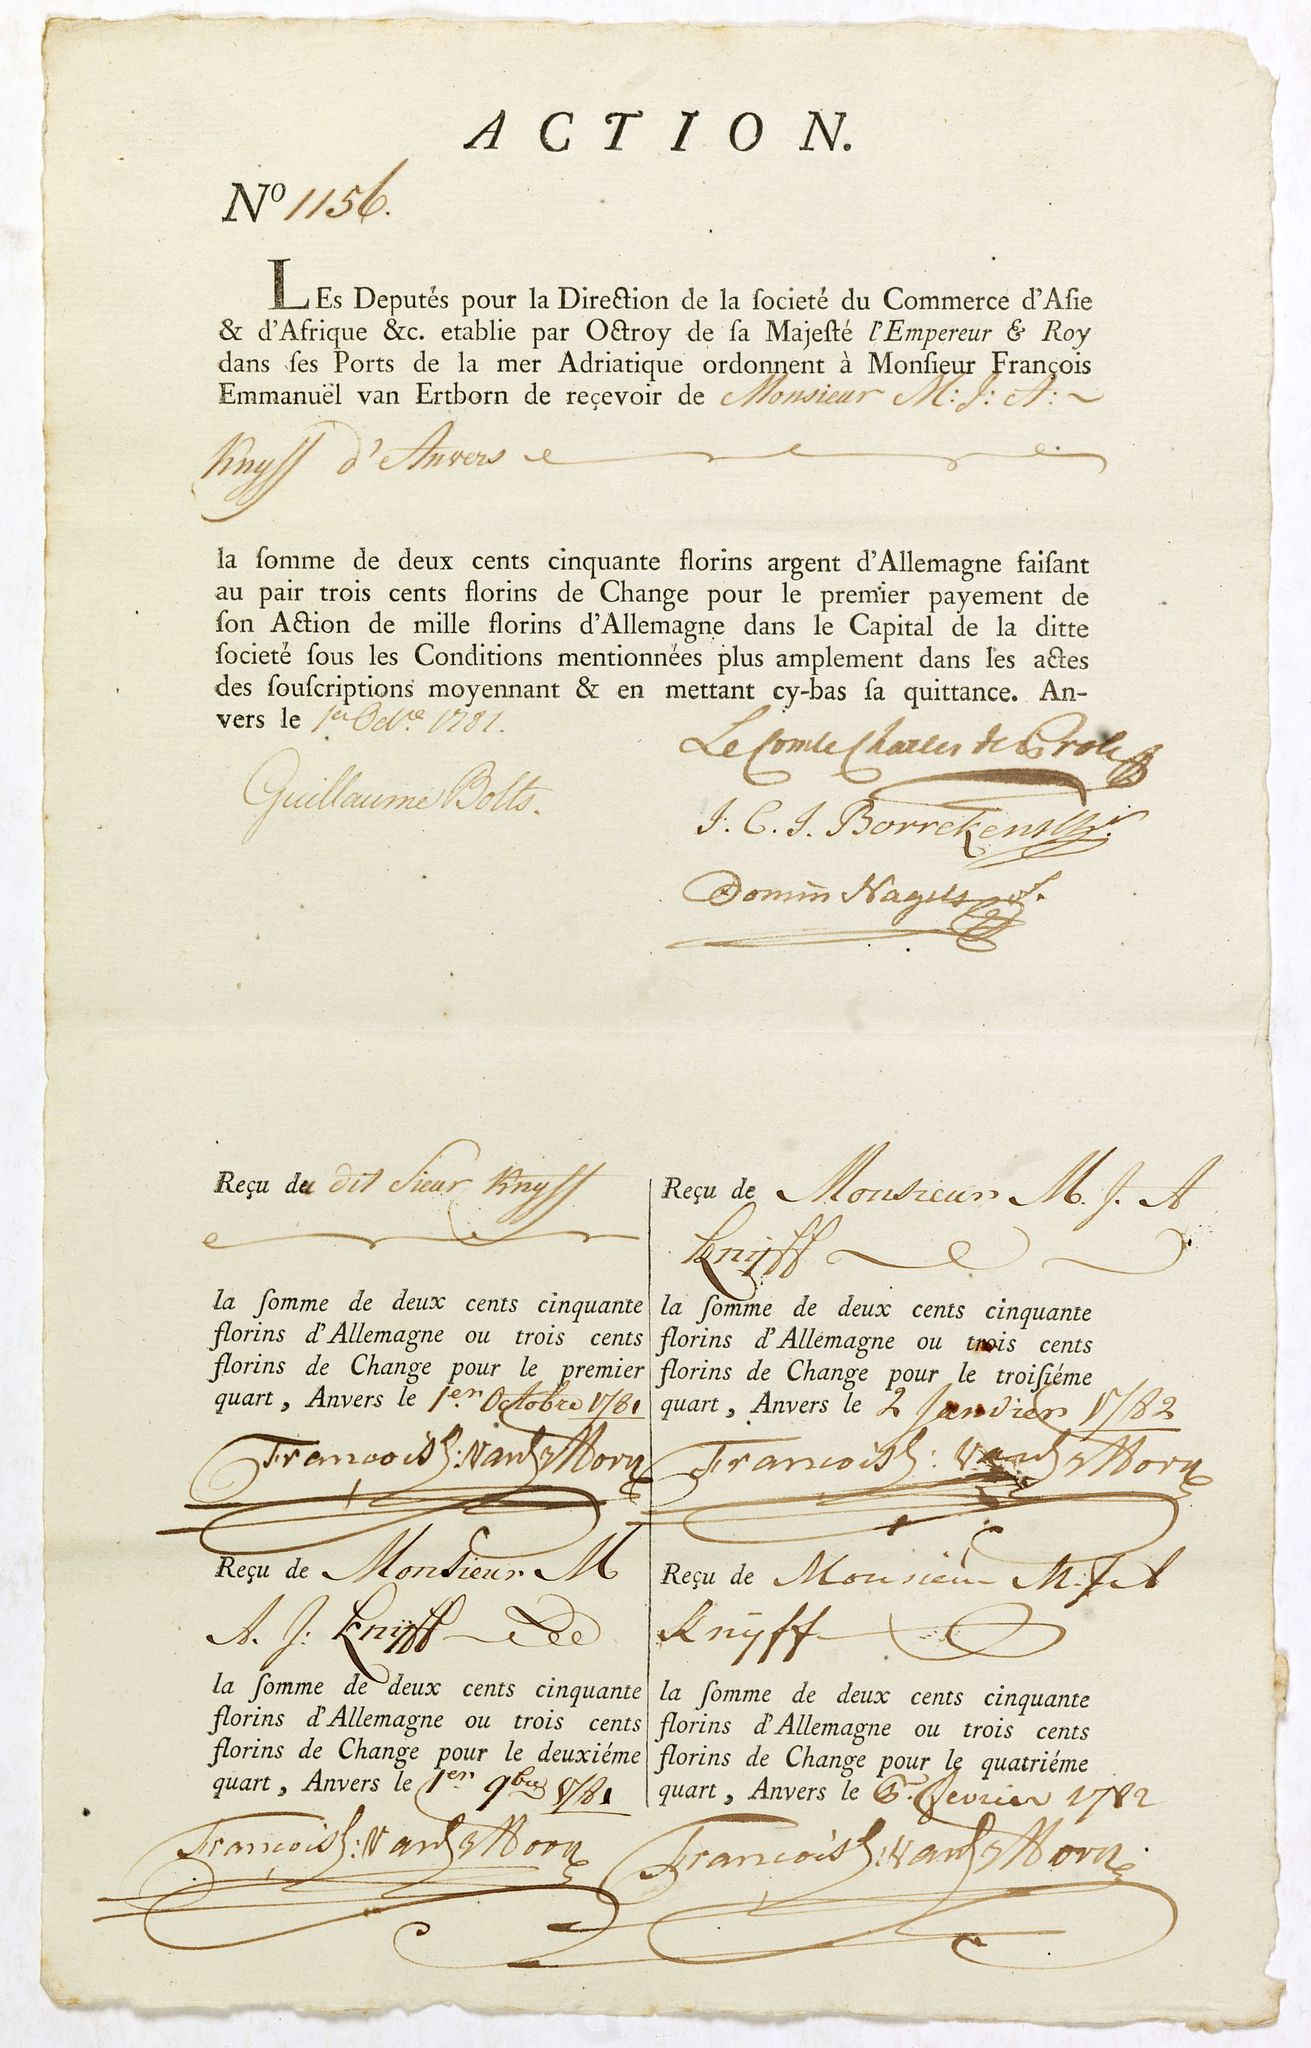 ACTION.
Nº 1156.
LEs Deputés pour la Direction de la ſocieté du Commerce d'Aſie
& d'Afrique &c. etablie par Octroy de ſa Majeſté l'Empereur & Roy
dans ſes Ports de la mer Adriatique ordonnent à Monſieur François
Emmanuël van Ertborn de reçevoir de Monsieur M: J: A:
Knyff d'Anvers
la ſomme de deux cents cinquante florins argent d'Allemagne faiſant
au pair trois cents florins de Change pour le premier payement de
ſon Action de mille florins d'Allemagne dans le Capital de la ditte
ſocieté ſous les Conditions mentionnées plus amplement dans les actes
des ſouſcriptions moyennant & en mettant cy-bas ſa quittance. An-
vers le 1er Octre 1781.
Le Comte Charles de Proli
Guillaume Bolts.
J. C. J. Borrekens
Domin Nagels
Reçu du dit Sieur Knyff
la ſomme de deux cents cinquante
florins d'Allemagne ou trois cents
florins de Change pour le premier
quart, Anvers le 1er Octobre 1781
François E: van Ertborn
Reçu de Monsieur M. J. A
Knijff
la ſomme de deux cents cinquante
florins d'Allemagne ou trois cents
florins de Change pour le troiſiéme
quart, Anvers le 2 Janvier 1782
François E: van Ertborn
Reçu de Monsieur M
A. J: Knijff
la ſomme de deux cents cinquante
florins d'Allemagne ou trois cents
florins de Change pour le deuxiéme
quart, Anvers le 1er 9bre 1781
François E: van Ertborn
Reçu de Monsieur M. J. A
Knÿff
la ſomme de deux cents cinquante
florins d'Allemagne ou trois cents
florins de Change pour le quatriéme
quart, Anvers le fevrier 1782
François E: van Ertborn